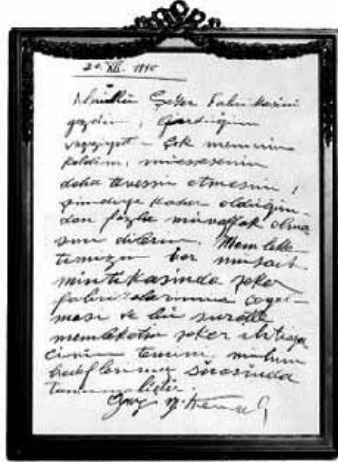 20. XII. 1930
Alpullu Şeker Fabrikasını
gezdim, gördüğüm
vaziyetten çok memnun
kaldım, müessesenin
daha tevessü etmesini,
şimdiye kadar olduğun-
dan fazla muvaffak olma-
sını dilerim. Memleke-
timizin her müsait
mıntıkasında şeker
fabrikalarımızın çoğal-
ması ve bu suretle
memleketin şeker ihtiya-
cının temini mühim
hedeflerimiz sırasında
tanınmalıdır.
Gazi M. Kemal